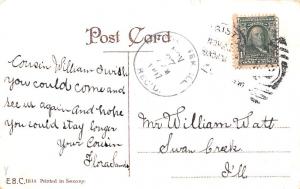 Post Card
Cousin William I wish
you could come and
see us again And hope
you could stay longer
Your Cousin
Flora
REC'D.
ILL
Mr William Watt
Swan Creek
Ill
E.B.C. Printed in Saxony.